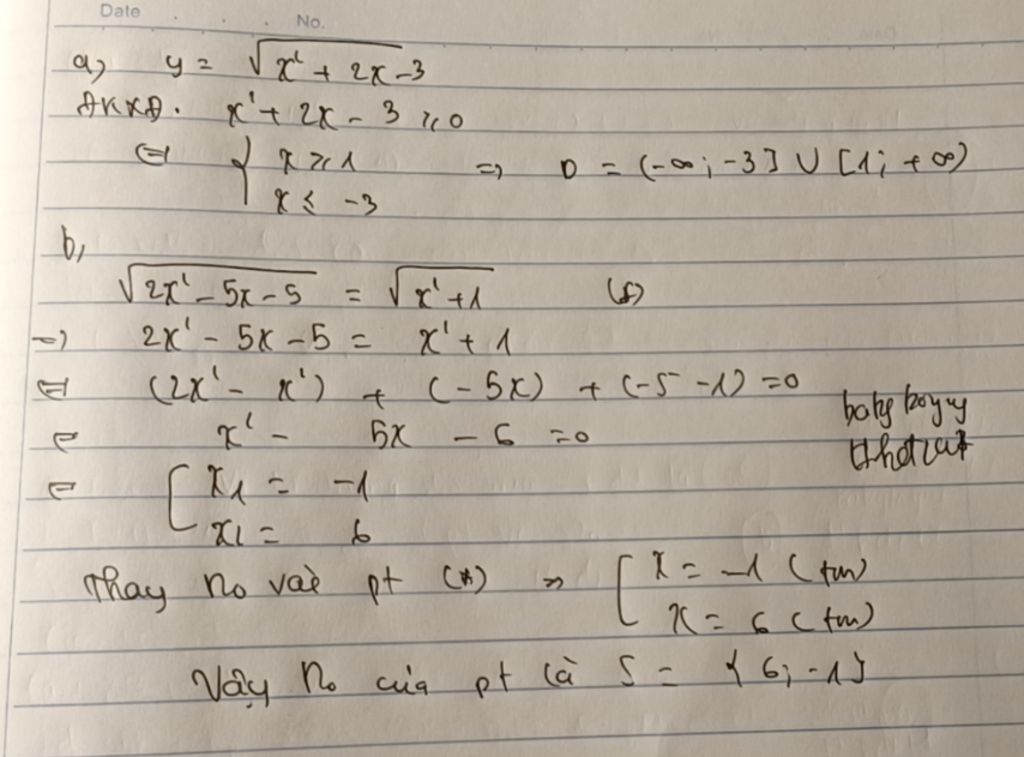 Date No.
a, y = √x² + 2x - 3
ĐKXĐ. x² + 2x - 3 ≥ 0
⇔ { x ≥ 1 x ≤ -3 => D = (-∞; -3] ∪ [1; +∞)
b,
√2x² - 5x - 5 = √x² + 1 (*)
=> 2x² - 5x - 5 = x² + 1
⇔ (2x² - x²) + (-5x) + (-5 - 1) = 0
⇔ x² - 5x - 6 = 0
⇔ [ x₁ = -1
x₂ = 6
Thay no vào pt (*) => [ x = -1 (tm)
x = 6 (tm)
Vậy no của pt là S = {6; -1}